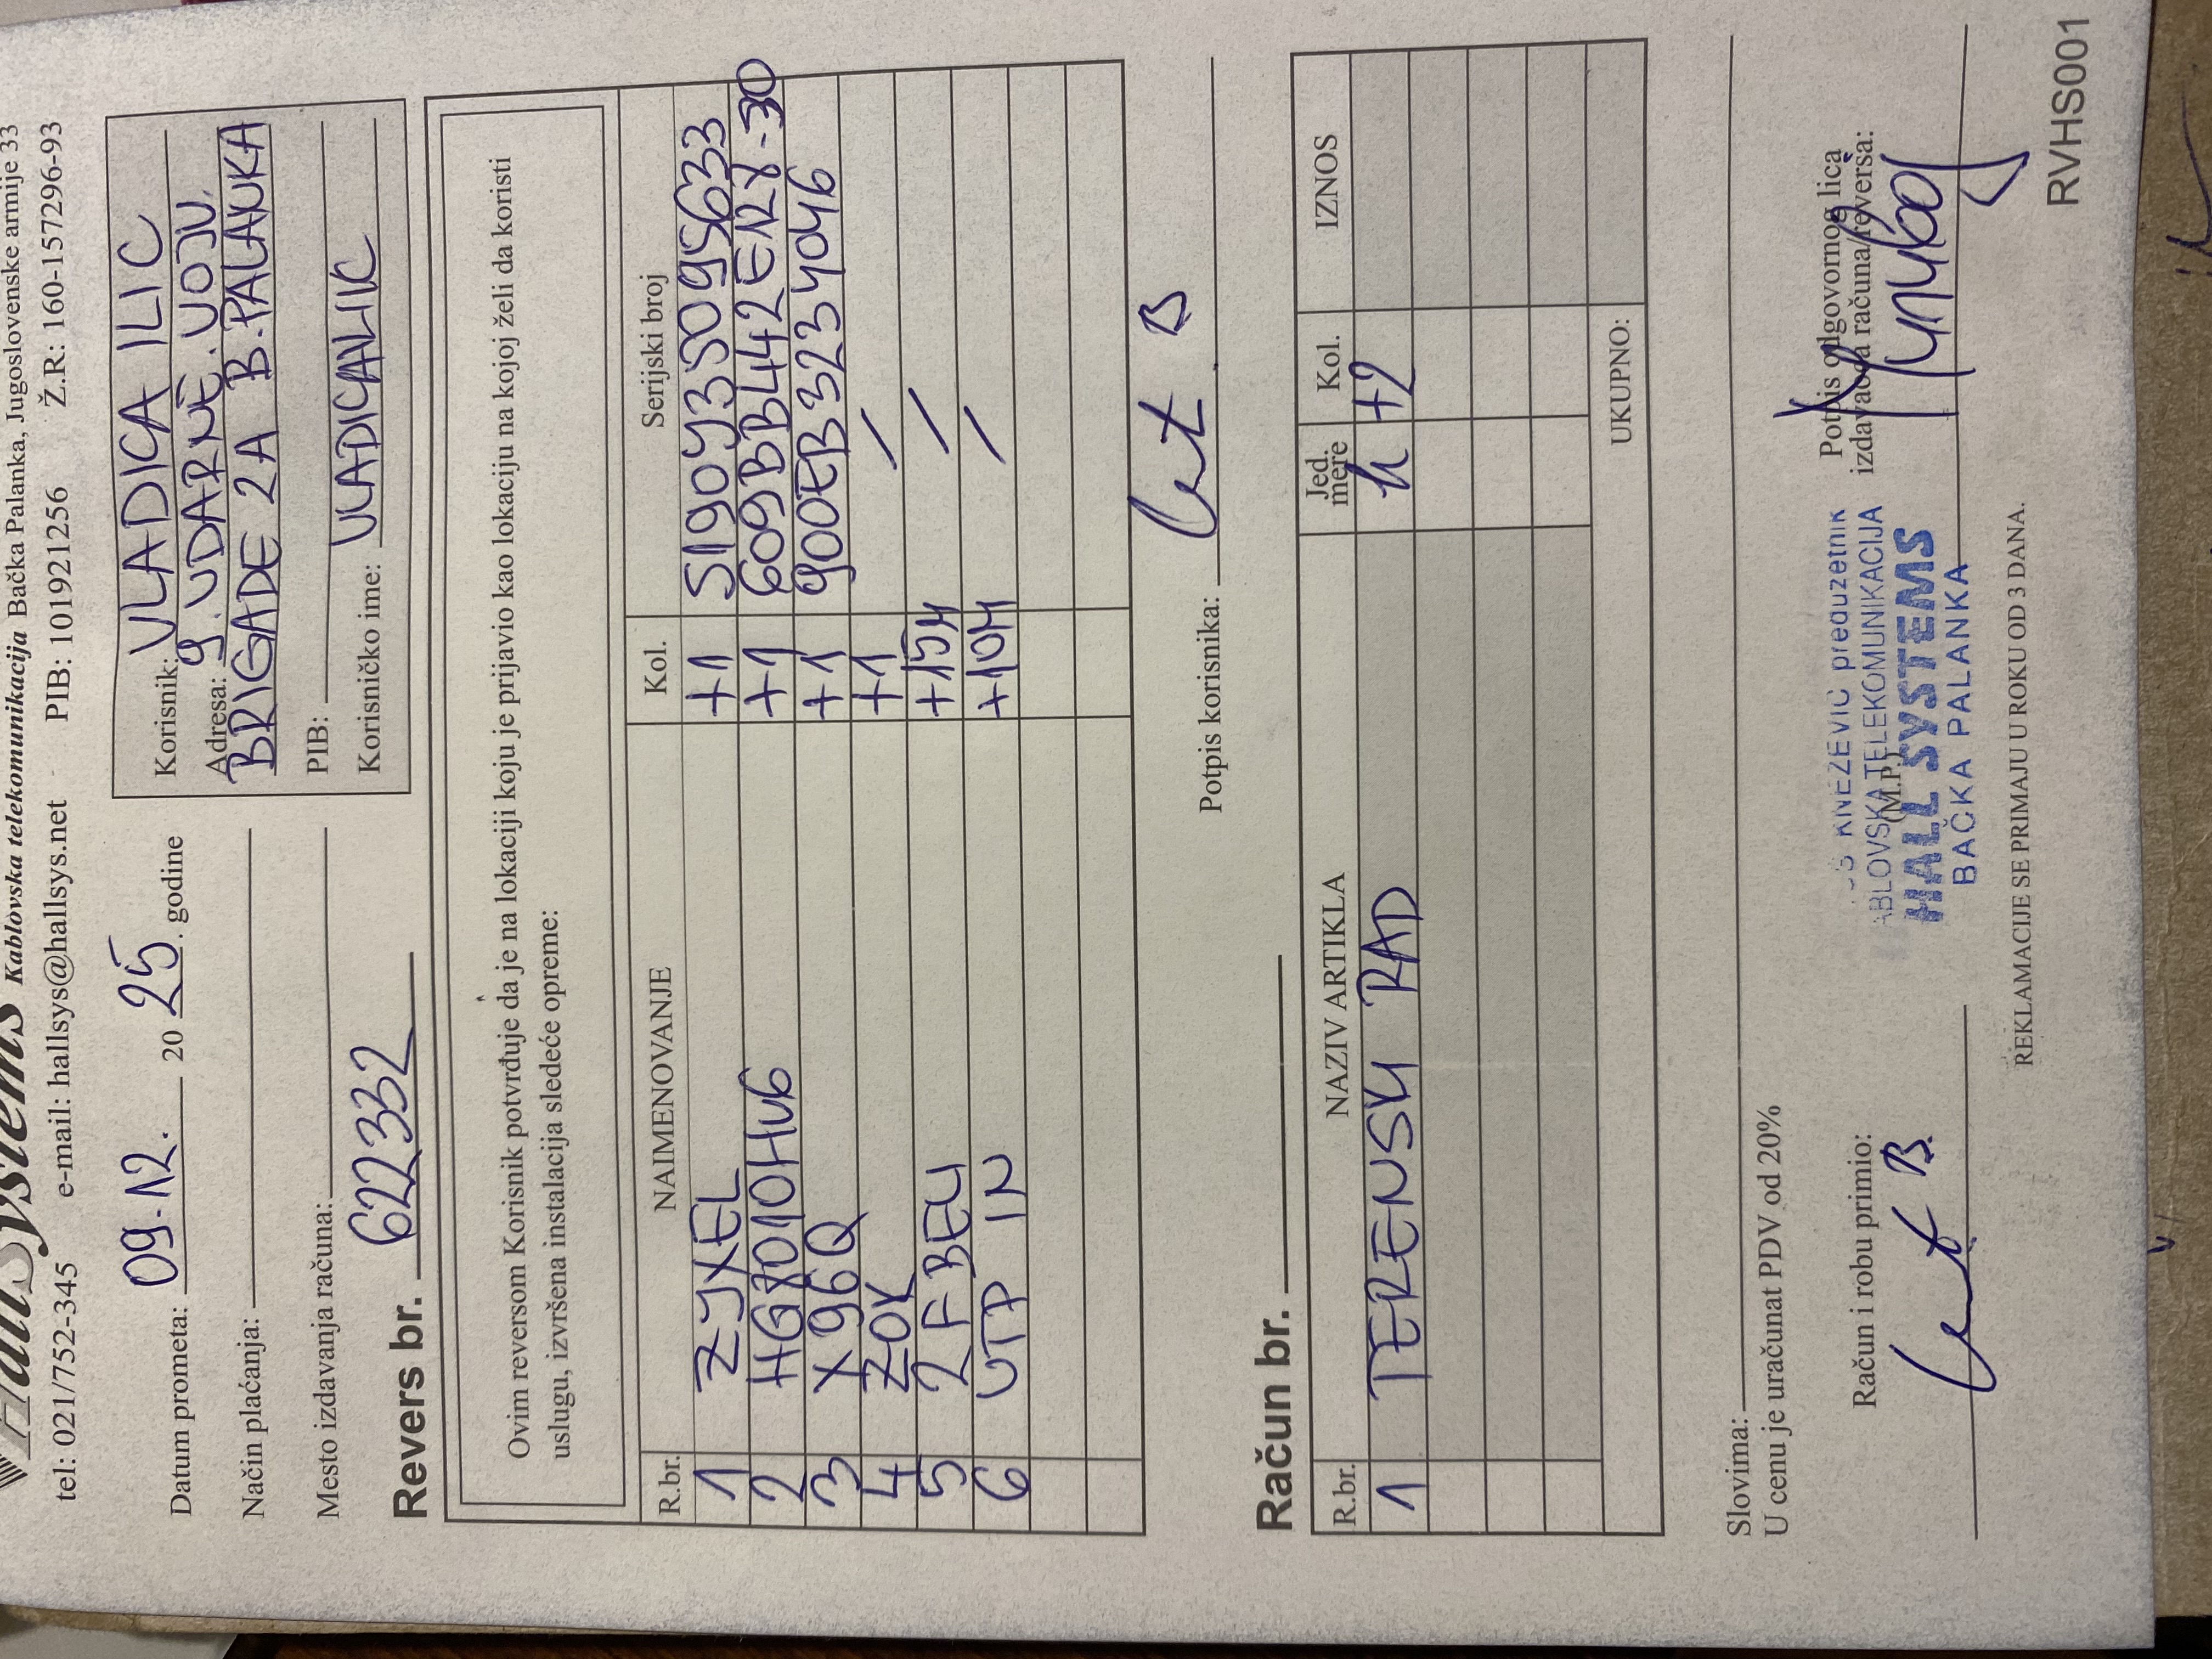 HallSystems Kablovska telekomunikacija Bačka Palanka, Jugoslovenske armije 33
tel: 021/752-345 e-mail: hallsys@hallsys.net PIB: 101921256 Ž.R: 160-157296-93
Datum prometa: 09.12. 20 25. godine
Način plaćanja:
Mesto izdavanja računa:
Korisnik: VLADICA ILIC
Adresa: 9. UDARNE. VOJV.
BRIGADE 2A B.PALANKA
PIB:
Korisničko ime: VLADICAILIC
Revers br. 622332
Ovim reversom Korisnik potvrđuje da je na lokaciji koju je prijavio kao lokaciju na kojoj želi da koristi
uslugu, izvršena instalacija sledeće opreme:
R.br. NAIMENOVANJE Kol. Serijski broj
1 ZYXEL +1 S190Y35095633
2 HG7010HU6 +1 609BB442E127-30
3 X96Q +1 900EB3234046
4 ZOK +1 /
5 2F BELI +15M /
6 UTP IN +10M /
Potpis korisnika:
Račun br.
R.br. NAZIV ARTIKLA Jed. mere Kol. IZNOS
1 TERENSKI RAD h +2
UKUPNO:
Slovima:
U cenu je uračunat PDV od 20%
Račun i robu primio:
(M.P.)
KNEŽEVIĆ preduzetnik
ABLOVSKA TELEKOMUNIKACIJA
HALL SYSTEMS
BAČKA PALANKA
Potpis odgovornog lica
izdavaoca računa/reversa:
REKLAMACIJE SE PRIMAJU U ROKU OD 3 DANA.
RVHS001